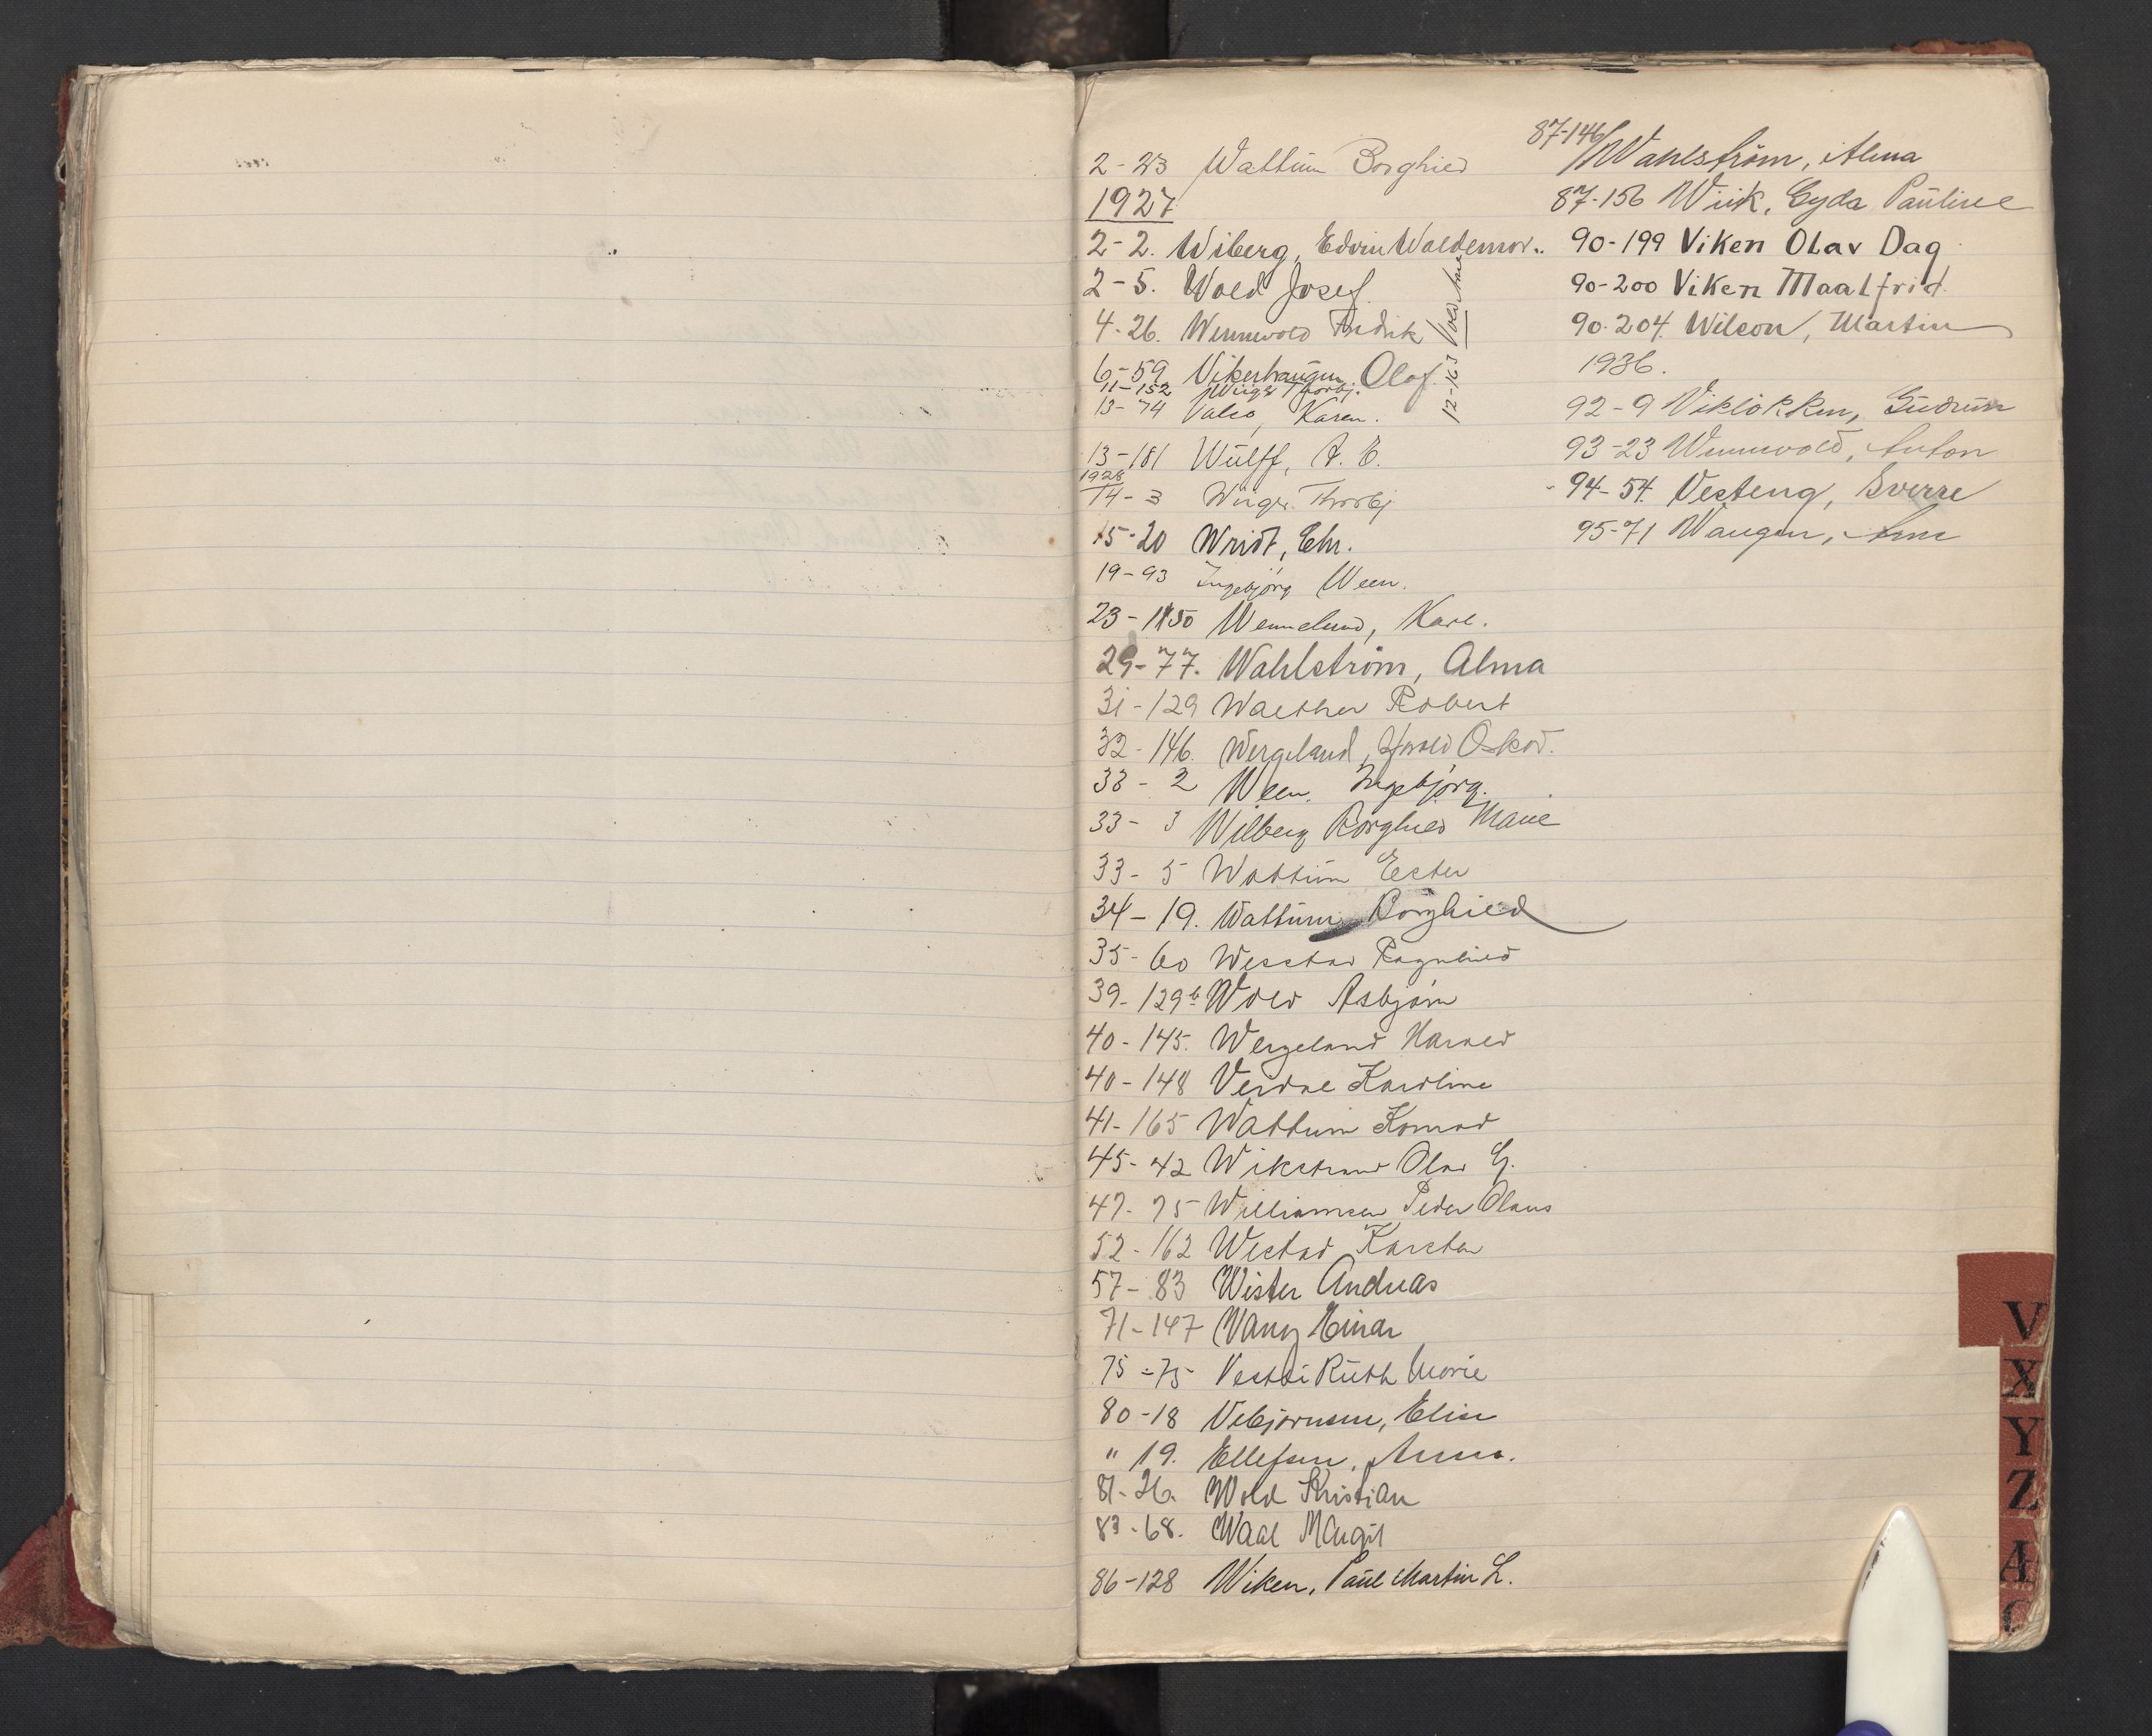 2-23 Wattum Borghild
1927
2-2. Wiberg, Edvin Waldemar.
2-5. Wold Josef
4-26. Wennevold Fredrik
6-59 Vikerhaugen Olaf.
11-152 Wiiger Thorbj.
12-163 Vold Arne
13-74 Valso, Karen.
13-181 Wulff, A. E.
1928
14-3 Wiiger Thorbj
15-20 Wridt, Chr.
19-93 Ingebjörg Ween.
23-150 Wennelund, Karl.
29-77. Wahlström, Alma
31-129 Walther Robert
32-146. Wergeland, Harald Oskar.
33-2 Ween, Ingebjörg.
33-3 Wilberg Borghild Marie
33-5 Wattum Ester
34-19. Wattum Borghild
35-60 Westad Ragnhild
39-129b Wold Asbjörn
40-145. Wergeland Harald
40-148 Verdal Karoline
41-165 Wattum Konrad
45-42 Wikstrand Olav G.
47-75 Williamsen Peder Olaus
52-162 Westad Karsten
57-83 Wister Andreas
71-147 Wang Einar
75-75 Vestli Ruth Marie
80-18 Vebjørnsen, Elise
" 19. Ellefsen, Anna.
81-26. Wold Kristian
83-68. Waal Margit
86-128 Wiken, Paul Martin L.
87-146/ Wahlström, Alma
87-156 Wiik, Gyda Pauline
90-199 Viken Olav Dag
90-200 Viken Maalfrid.
90-204. Wilson, Martin
1936.
92-9 Vikløkken, Gudrun
93-23 Wennevold, Anton
94-54. Vesteng, Sverre
95-71 Waugen, Arne
V
X
Y
Z
Æ